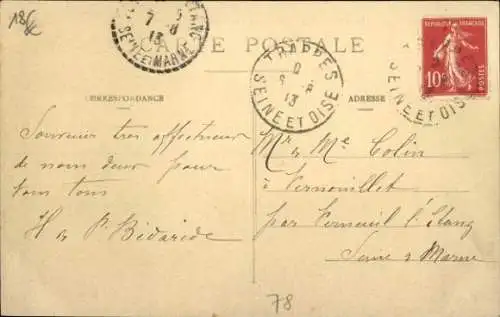 18€
ETANG
7 - 8
13
SEINE ET MARNE
CARTE POSTALE
TRAPPES
13
SEINE ET OISE
REPUBLIQUE FRANÇAISE
10c
POSTES
SEINE ET OISE
CORRESPONDANCE
ADRESSE
Souvenir très affectueux
de nous deux pour
vous tous
H & P. Bidaride
Mr & Me Colin
à Vernouillet
par Verneuil l'Etang
Seine & Marne
78